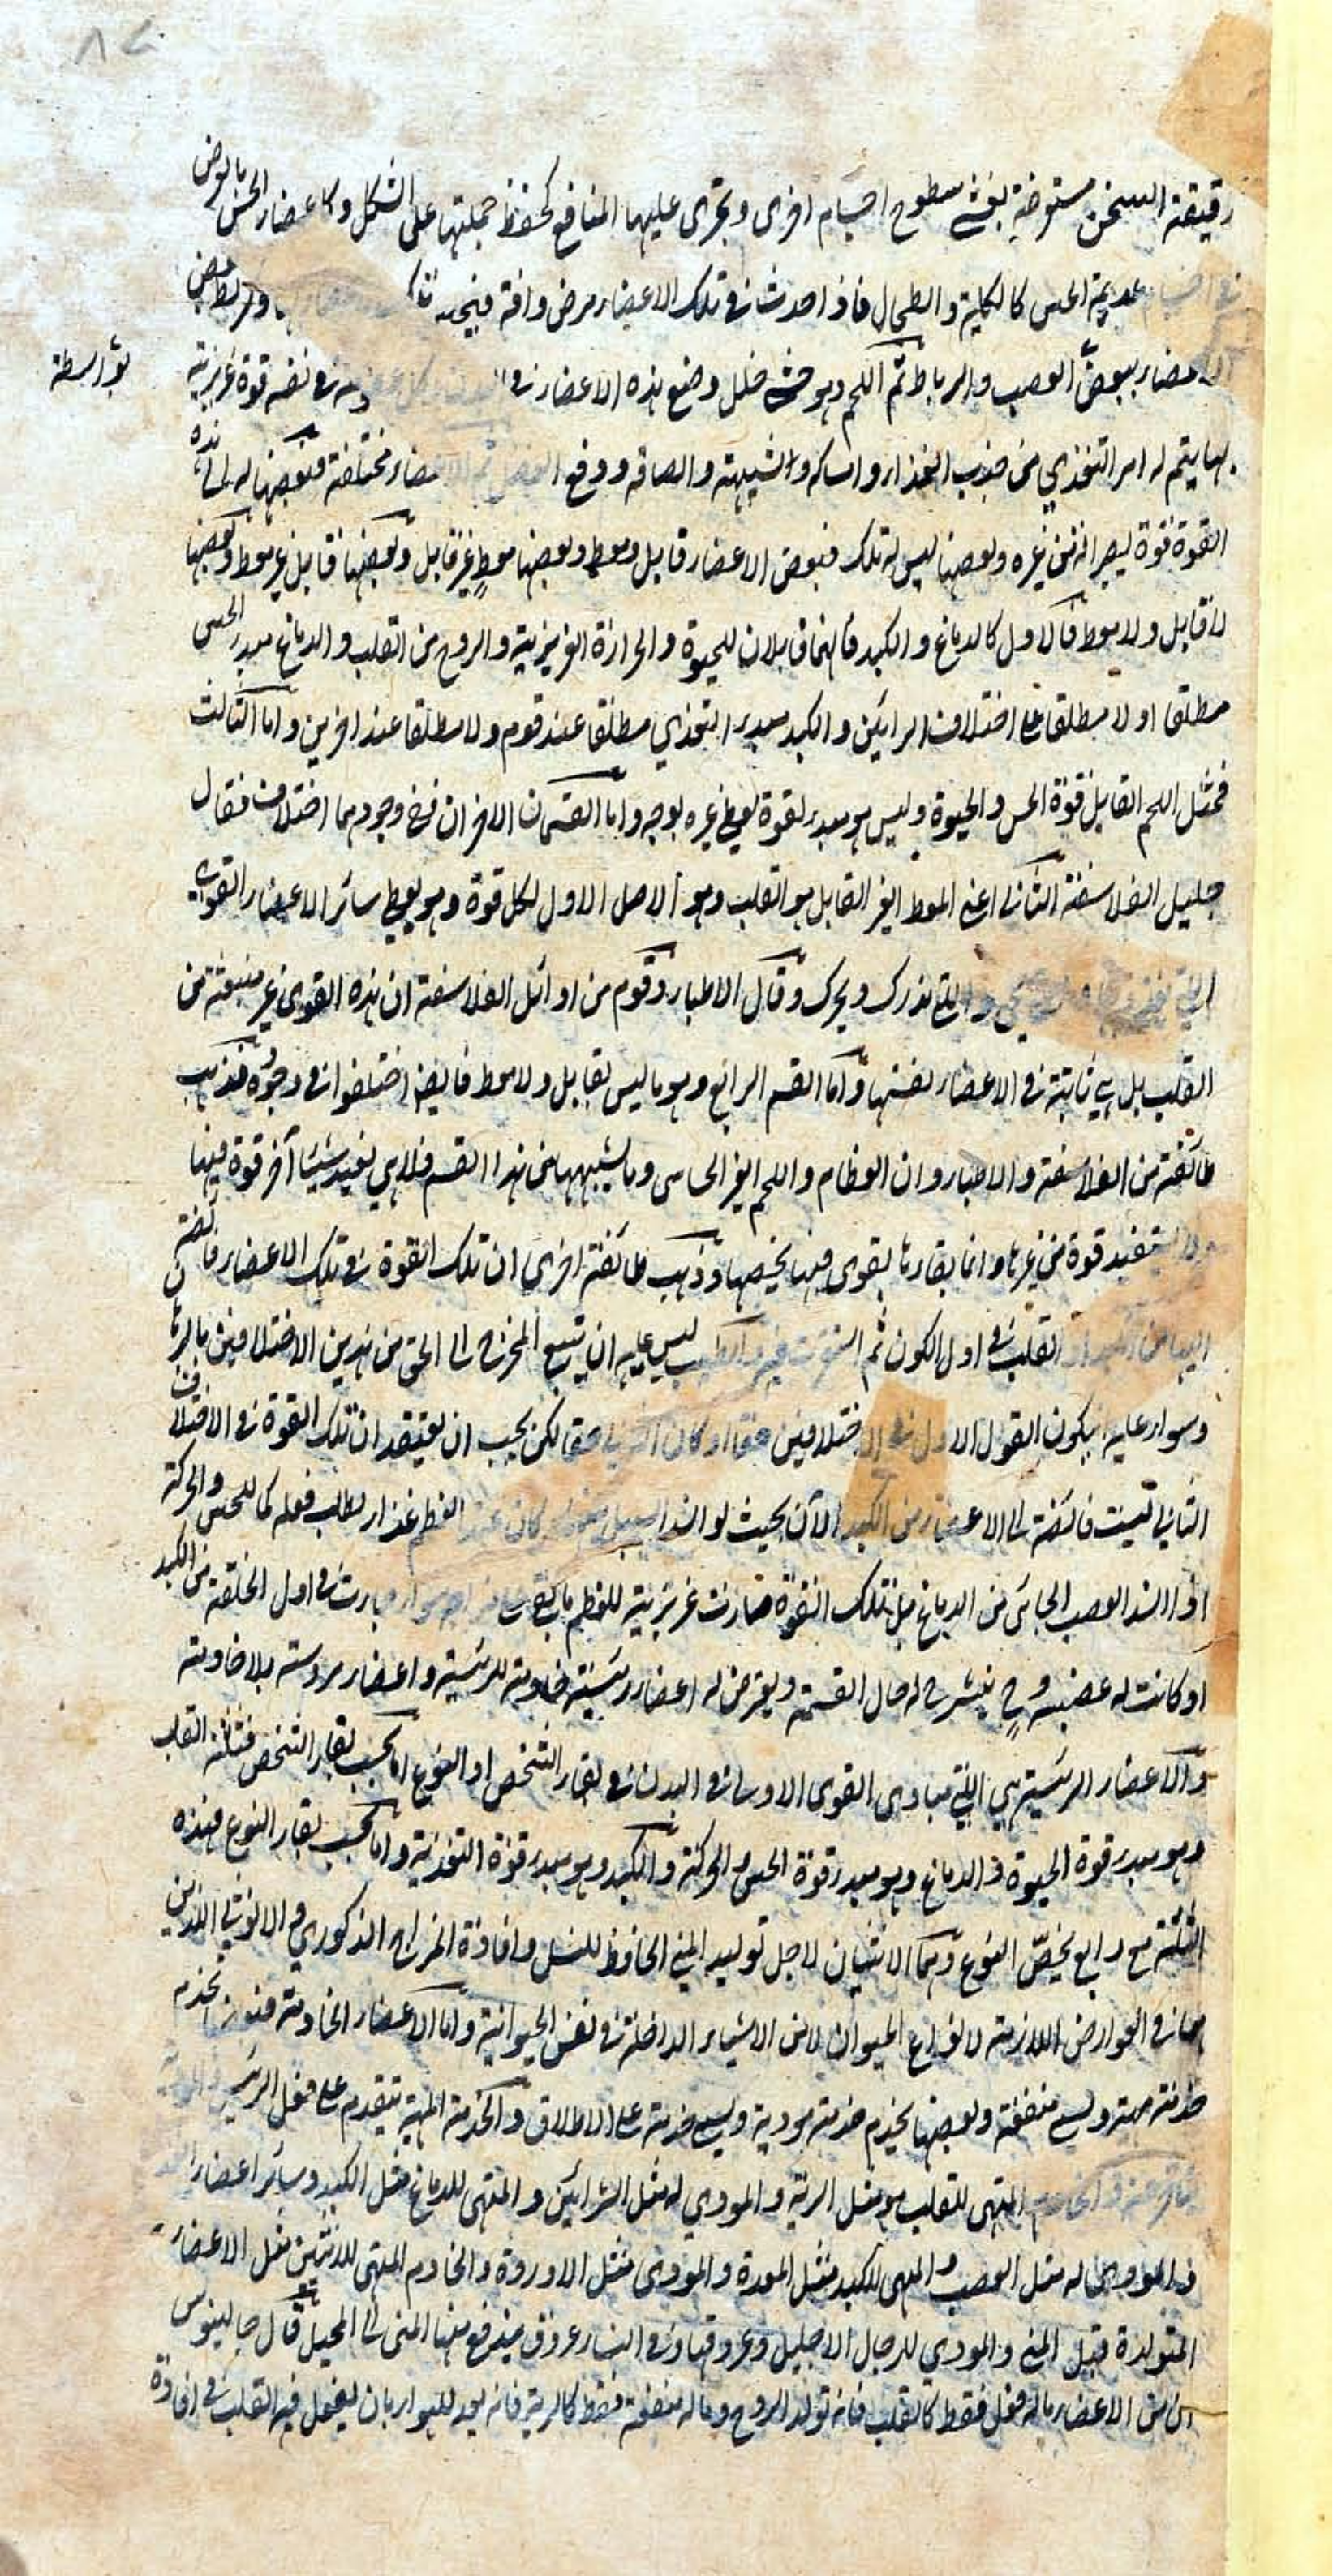 ٨٢
رقيقة السخن مستعرضة تغشى سطوح اجسام اخرى وتجرى عليها المنافع كحفظ جملتها على الشكل وكاعضاء الحس بالعرض
عديمة الحس كالكلية والطحال فاذا حدث فى تلك الاعضاء مرض وافة وربط بعض
الاعضاء ببعض العصب والرباط ثم اللحم وهو حشو خلل وضع هذه الاعضاء فى فى نفسه قوة غريزية
بواسطة
بها يتم له امر التغذي من جذب الغذاء وامساكه والتشبيه والصاقه ودفع الفضل ثم الاعضاء مختلفة فبعضها له الى هذه
القوة قوة ليصير اليه من غيره وبعضها ليس له تلك فبعض الاعضاء قابل ومعط وبعضها معط غير قابل وبعضها قابل غير معط وبعضها
لا قابل ولا معط فالاول كالدماغ والكبد فانهما قابلان للحيوة والحرارة الغريزية والروح من القلب والدماغ مبدء الحس
مطلقا او لا مطلقا على اختلاف الرائين والكبد مبدء التغذي مطلقا عند قوم ولا مطلقا عند اخرين واما الثالث
فمثل اللحم القابل قوة الحس والحيوة وليس هو مبدء لقوة يعطي غيره بوجه واما القسمان الاخران ففى وجودهما اختلاف فقال
جليل الفلاسفة الثانى اعنى المعط الغير القابل هو القلب وهو الاصل الاول لكل قوة وهو يعطى سائر الاعضاء القوى
التى والتى تدرك وتحرك وقال الاطباء وقوم من اوائل الفلاسفة ان هذه القوى غير منبعثة من
القلب بل هى ثابتة فى الاعضاء نفسها واما القسم الرابع وهو ما ليس بقابل ولا معط فايضا اختلفوا فى وجوده فذهب
طائفة من الفلاسفة والاطباء وان العظام واللحم الغير الحاس وما يشبههما من هذا القسم فلا هى تفيد شيئا آخر قوة فيها
ولا تستفيد قوة من غيرها وانما بقاءها بقوى فيها يخصها وذهب طائفة اخرى ان تلك القوة فى تلك الاعضاء فائضة
اليها من الكبد او القلب فى اول الكون ثم استقرت فيه والطبيب ليس عليه ان يتبع المخرج الى الحق من هذين الاختلافين بالبرهان
وسواء عليه يكون القول الاول فى الاختلافين حقا او كان الثانى حقا لكن يجب ان يعتقد ان تلك القوة فى الاختلاف
الثانى ليست فائضة الى الاعضاء من الكبد الآن بحيث لو انسد السبيل بينهما وكان عند العظم غذاء لبطل فعله كما للحس والحركة
اذا انسد العصب الجائى من الدماغ بل تلك القوة صارت غريزية للعظم ما بقى صارت فى اول الخلقة من الكبد
او كانت له عصبية وح ينشرح له حال القسمة ويعترض له اعضاء رئيسية خادمة للرئيسية واعضاء مرؤسة بلا خادمة
والاعضاء الرئيسية هى التى مبادى القوى الاولى فى البدن فى بقاء الشخص او النوع اما بحسب بقاء الشخص فثلثة القلب
وهو مبدء قوة الحيوة والدماغ وهو مبدء قوة الحس والحركة والكبد وهو مبدء قوة التغذية واما بحسب بقاء النوع فهذه
الثلثة مع رابع يخص النوع وهما الانثيان لاجل توليد المنى الحافظ للنسل وافادة المزاج الذكورى والانوثى اللذين
هما فى العوارض اللازمة لانواع الحيوان لا من الاشياء الداخلة فى نفس الحيوانية واما الاعضاء الخادمة فبعضها تخدم
خدمة مهيئة ويسمى منفعة وبعضها يخدم خدمة مودية ويسمى خدمة على الاطلاق والخدمة المهيئة يتقدم على فعل الرئيس والمودية
يتاخر عنه والخادم المهيئ للقلب هو مثل الرية والمودي له مثل الشرائين والمهيئ للدماغ مثل الكبد وسائر اعضاء
والمودى له مثل العصب والمهيئ للكبد مثل المعدة والمودى مثل الاوردة والخادم المهيئ للانثيين مثل الاعضاء
المتولدة قبل المنى والمودى للرجال الاحليل وعروقهما وفى النساء عروق يندفع فيها المنى الى المحبل قال جالينوس
ان من الاعضاء ماله فعل فقط كالقلب فانه تولد الروح وماله منفعة فقط كالرية فانه يعد للهواء بان يفعل فيه القلب فى افادة